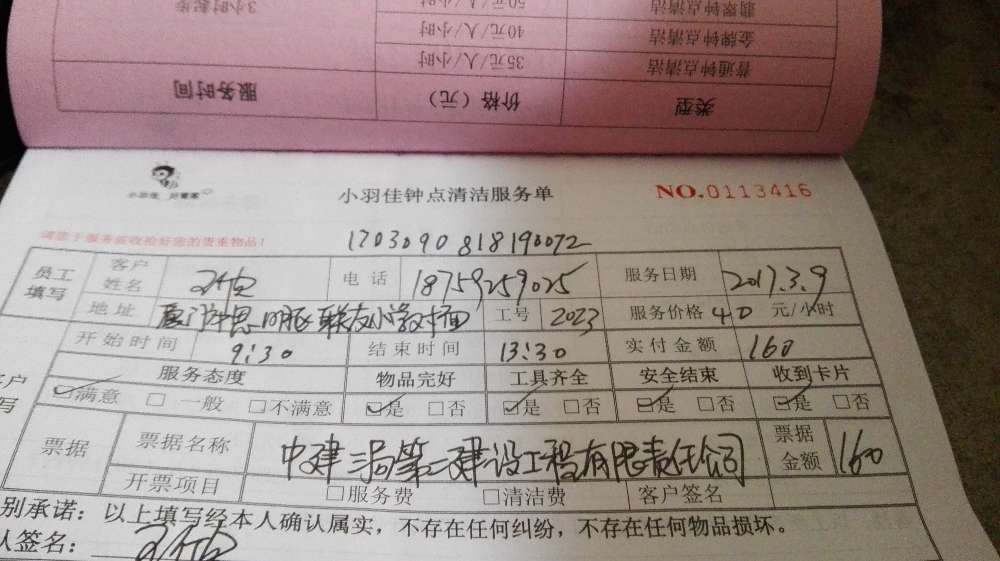 3小时起步
50元/人/小时
翡翠钟点清洁
40元/人/小时
金牌钟点清洁
35元/人/小时
普通钟点清洁
服务时间
价格(元)
类型
小羽佳
小羽佳钟点清洁服务单
NO.0113416
请您于服务前收拾好您的贵重物品!
1703090818190072
员工填写
客户姓名
电话 18759259025
服务日期 2017.3.9
地址
工号 2023
服务价格 40 元/小时
开始时间 9:30
结束时间 13:30
实付金额 160
服务态度 物品完好 工具齐全 安全结束 收到卡片
满意 一般 不满意 是 否 是 否 是 否 是 否
票据
票据名称 中建三局第二建设工程有限责任公司
票据金额 160
开票项目 服务费 清洁费 客户签名
别承诺:以上填写经本人确认属实,不存在任何纠纷,不存在任何物品损坏。
人签名: